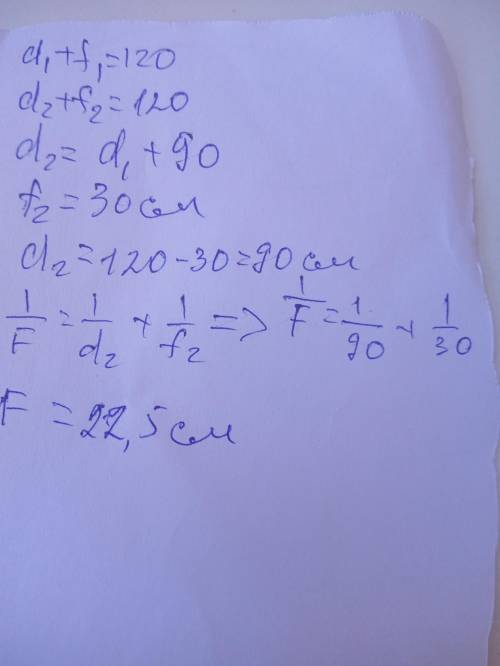 d₁+f₁=120
d₂+f₂=120
d₂= d₁+90
f₂=30см
d₂=120-30=90см
1/F = 1/d₂ + 1/f₂ => 1/F = 1/90 + 1/30
F = 22,5см